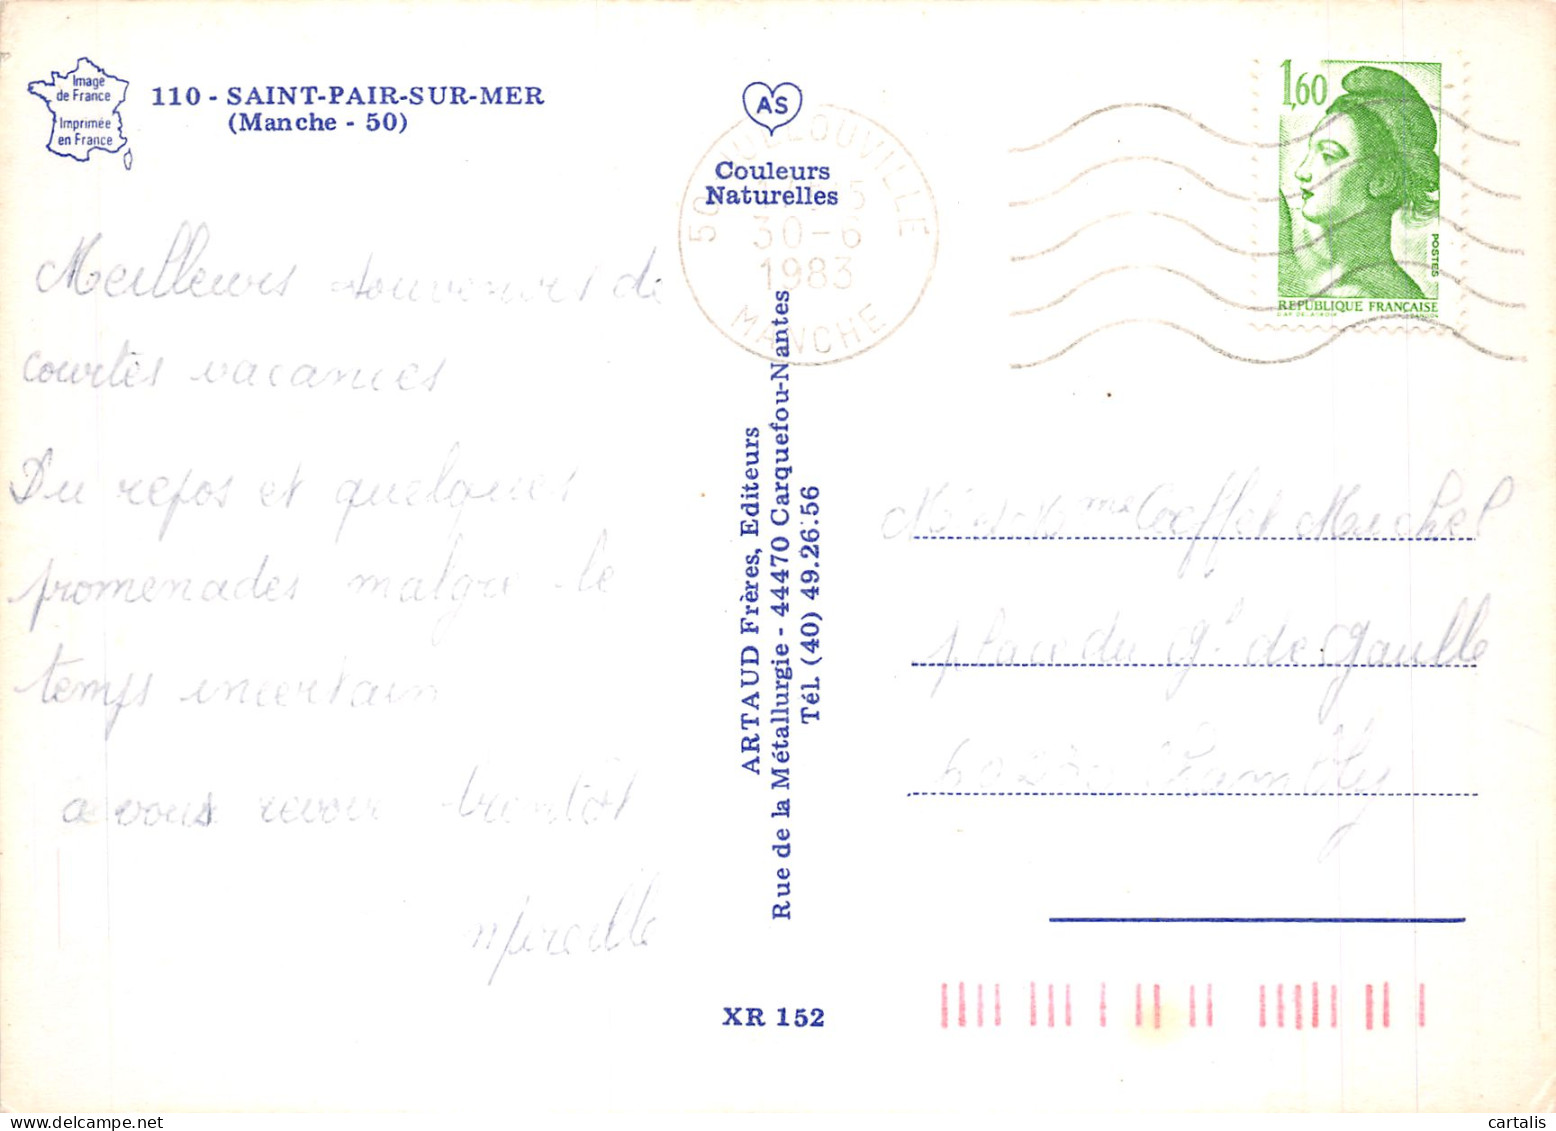 Image
de France
Imprimée
en France
110 - SAINT-PAIR-SUR-MER
(Manche - 50)
Meilleurs souvenirs de
courtes vacances
Du repos et quelques
promenades malgré le
temps incertain
a vous revoir bientôt
Mireille
AS
Couleurs
Naturelles
50 JULLOUVILLE
30-6
1983
MANCHE
ARTAUD Frères, Editeurs
Rue de la Métallurgie - 44470 Carquefou-Nantes
Tél. (40) 49.26.56
XR 152
1,60
POSTES
REPUBLIQUE FRANÇAISE
Michel
place du Gl de Gaulle
60230 Chambly
cartalis